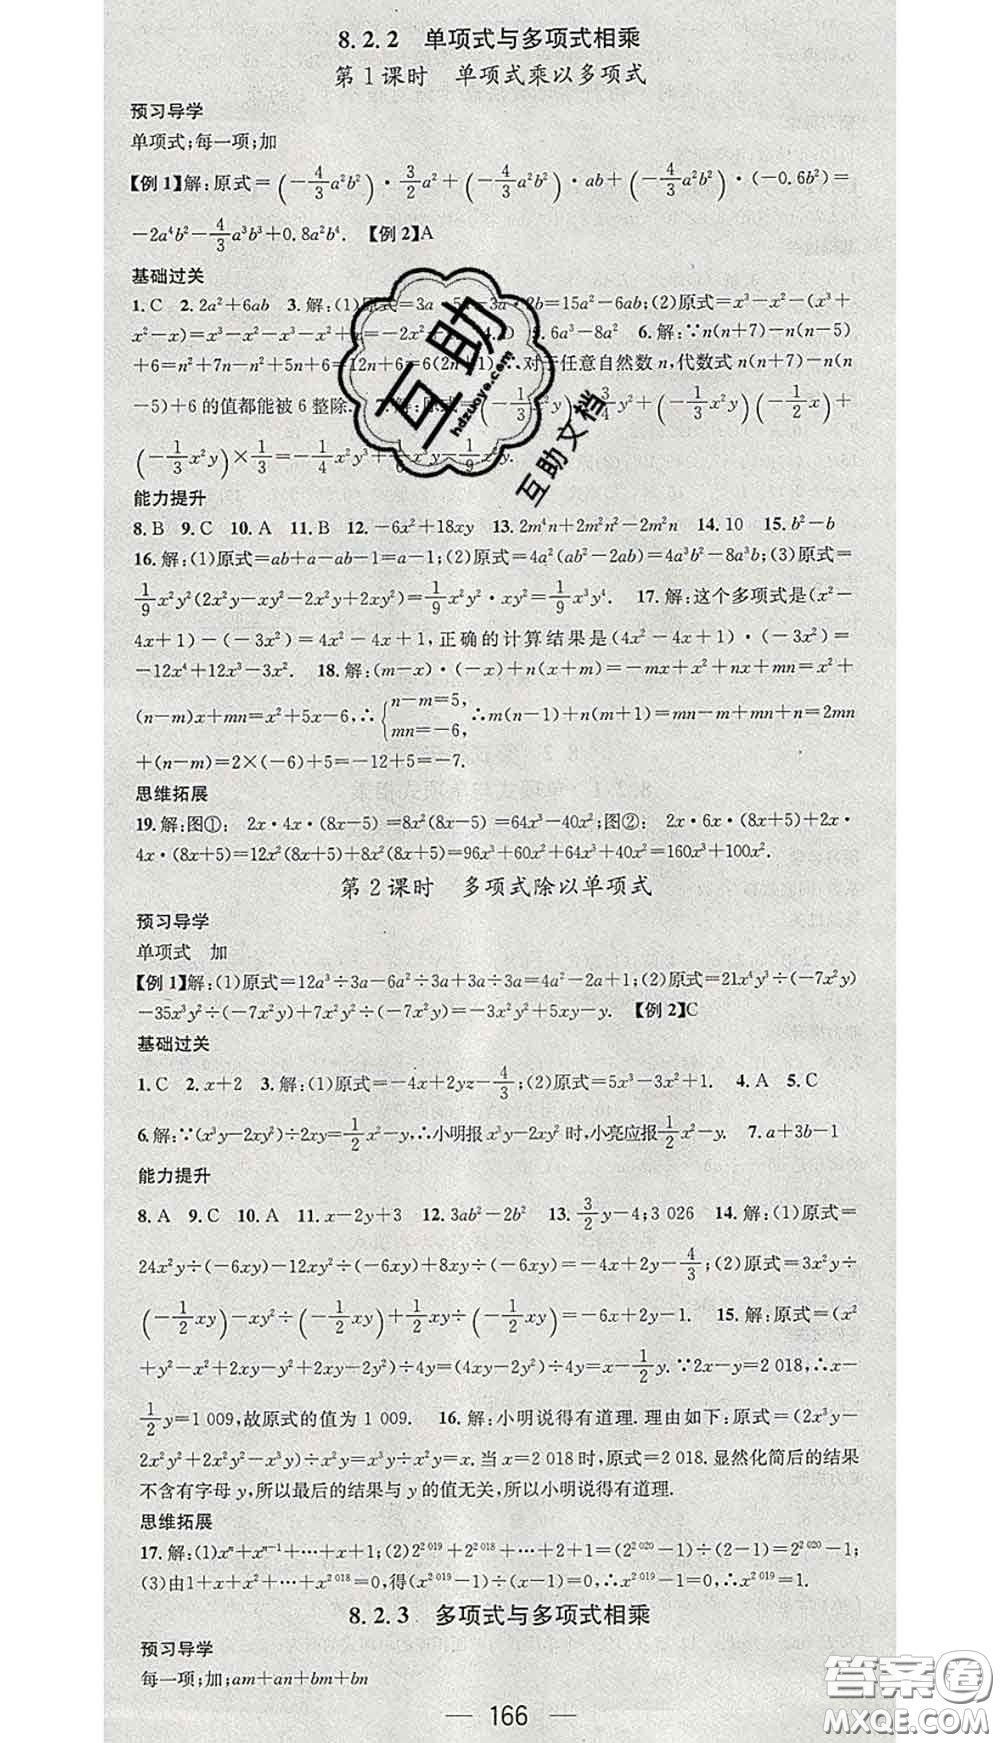 8.2.2 单项式与多项式相乘
第1课时 单项式乘以多项式
预习导学
单项式;每一项;加
【例1】解:原式=(-4/3a²b²)·3/2a²+(-4/3a²b²)·ab+(-4/3a²b²)·(-0.6b²)=
-2a⁴b²-4/3a³b³+0.8a²b⁴. 【例2】A
基础过关
1.C 2.2a²+6ab 3.解:(1)原式=3a·5a-3a·2b=15a²-6ab;(2)原式=x³-x²-(x³+
x²-x)=x³-x²-x³-x²+x=-2x²+x. 4.D 5.6a³-8a² 6.解:∵n(n+7)-n(n-5)
+6=n²+7n-n²+5n+6=12n+6=6(2n+1),∴对于任意自然数n,代数式n(n+7)-n(n
-5)+6的值都能被6整除. 7.解:原式=(-1/3x²y)·3/4y²+(-1/3x²y)(-1/2x)+
(-1/3x²y)×1/3=-1/4x²y³+1/6x³y-1/9x²y.
能力提升
8.B 9.C 10.A 11.B 12.-6x²+18xy 13.2m⁴n+2m²n²-2m²n 14.10 15.b²-b
16.解:(1)原式=ab+a-ab-1=a-1;(2)原式=4a²(ab²-2ab)=4a³b²-8a³b;(3)原式=
1/9x²y²(2x²y-xy²-2x²y+2xy²)=1/9x²y²·xy²=1/9x³y⁴. 17.解:这个多项式是(x²-
4x+1)-(-3x²)=4x²-4x+1,正确的计算结果是(4x²-4x+1)·(-3x²)=
-12x⁴+12x³-3x². 18.解:(m-x)·(-x)+n(x+m)=-mx+x²+nx+mn=x²+
(n-m)x+mn=x²+5x-6,∴{n-m=5, mn=-6 ∴m(n-1)+n(m+1)=mn-m+mn+n=2mn
+(n-m)=2×(-6)+5=-12+5=-7.
思维拓展
19.解:图①: 2x·4x·(8x-5)=8x²(8x-5)=64x³-40x²;图②: 2x·6x·(8x+5)+2x·
4x·(8x+5)=12x²(8x+5)+8x²(8x+5)=96x³+60x²+64x³+40x²=160x³+100x².
第2课时 多项式除以单项式
预习导学
单项式 加
【例1】解:(1)原式=12a³÷3a-6a²÷3a+3a÷3a=4a²-2a+1;(2)原式=21x⁴y³÷(-7x²y)
-35x³y²÷(-7x²y)+7x²y²÷(-7x²y)=-3x²y²+5xy-y. 【例2】C
基础过关
1.C 2.x+2 3.解:(1)原式=-4x+2yz-4/3;(2)原式=5x³-3x²+1. 4.A 5.C
6.解:∵(x³y-2xy²)÷2xy=1/2x²-y,∴小明报x³y-2xy²时,小亮应报1/2x²-y. 7.a+3b-1
能力提升
8.A 9.C 10.A 11.x-2y+3 12.3ab²-2b² 13.3/2y-4;3 026 14.解:(1)原式=
24x²y÷(-6xy)-12xy²÷(-6xy)+8xy÷(-6xy)=-4x+2y-4/3;(2)原式=3x²y÷
(-1/2xy)-xy²÷(-1/2xy)+1/2xy÷(-1/2xy)=-6x+2y-1. 15.解:原式=(x²
+y²-x²+2xy-y²+2xy-2y²)÷4y=(4xy-2y²)÷4y=x-1/2y.∵2x-y=2 018,∴x-
1/2y=1 009,故原式的值为1 009. 16.解:小明说得有道理.理由如下:原式=(2x³y-
2x²y²+2x²y²-x³y)÷x²y=x³y÷x²y=x.当x=2 018时,原式=2 018.显然化简后的结果
不含有字母y,所以最后的结果与y的值无关,所以小明说得有道理.
思维拓展
17.解:(1)xⁿ+xⁿ⁻¹+…+x+1;(2)2²⁰¹⁹+2²⁰¹⁸+…+2+1=(2²⁰²⁰-1)÷(2-1)=2²⁰²⁰-1;
(3)由1+x+x²+…+x²⁰¹⁸=0,得(x²⁰¹⁹-1)÷(x-1)=0,∴x²⁰¹⁹-1=0,∴x²⁰¹⁹=1.
8.2.3 多项式与多项式相乘
预习导学
每一项;加;am+an+bm+bn
166
互助
hdzuoye.com
互助文档
答案圈
MXQE.COM